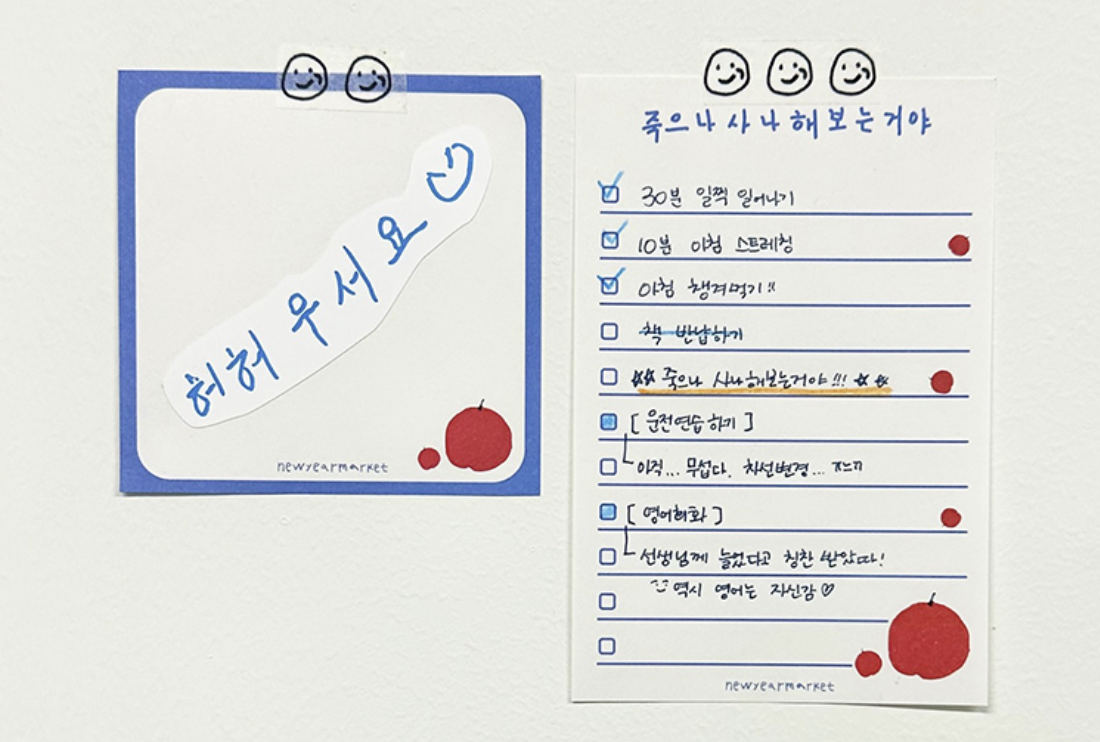 허허 우서요
newyearmarket
죽으나 사나 해보는거야
30분 일찍 일어나기
10분 아침 스트레칭
아침 챙겨먹기!!
책 반납하기
☆☆ 죽으나 사나 해보는거야!!! ☆☆
[ 운전연습 하기 ]
아직... 무섭다. 차선변경... ㅠㅡㅠ
[ 영어회화 ]
선생님께 늘었다고 칭찬 받았따!
역시 영어는 자신감♡
newyearmarket